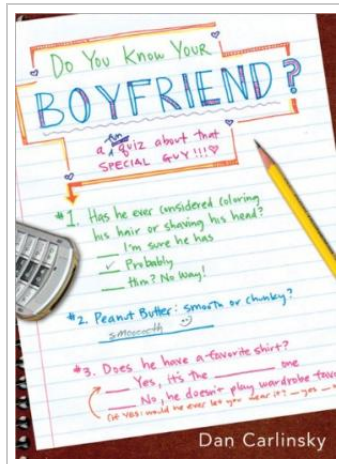 Do You Know Your
BOYFRIEND?
a fun quiz about that
SPECIAL GUY!!!
#1. Has he ever considered coloring
his hair or shaving his head?
___ I'm sure he has
✓ Probably
___ Him? No Way!
#2. Peanut Butter: smooth or chunky?
smooooth
#3. Does he have a favorite shirt?
___ Yes, it's the ___ one
___ No, he doesn't play wardrobe
(if yes: would he ever let you wear it? — yes —
Dan Carlinsky